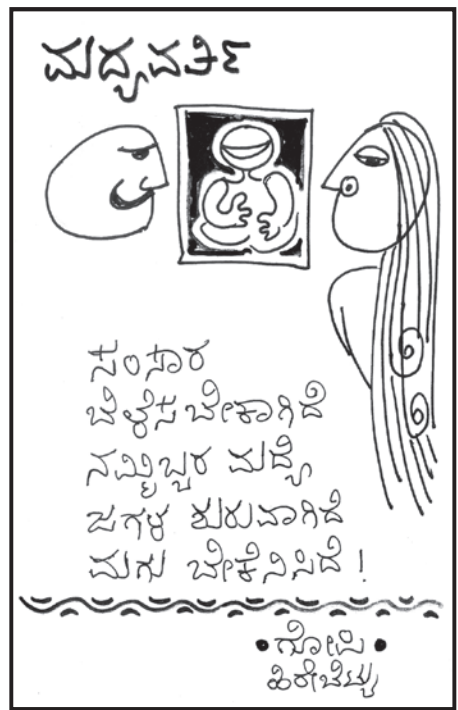 ಮದ್ಯವರ್ತಿ
ಸಂಸಾರ
ಬೆಳೆಸಬೇಕಾಗಿದೆ
ನಮ್ಮಿಬ್ಬರ ಮದ್ಯೆ
ಜಗಳ ಶುರುವಾಗಿದೆ
ಮಗು ಬೇಕೆನಿಸಿದೆ!
ಗೋಪಿ
ಹಿರೇಬೆಟ್ಟು